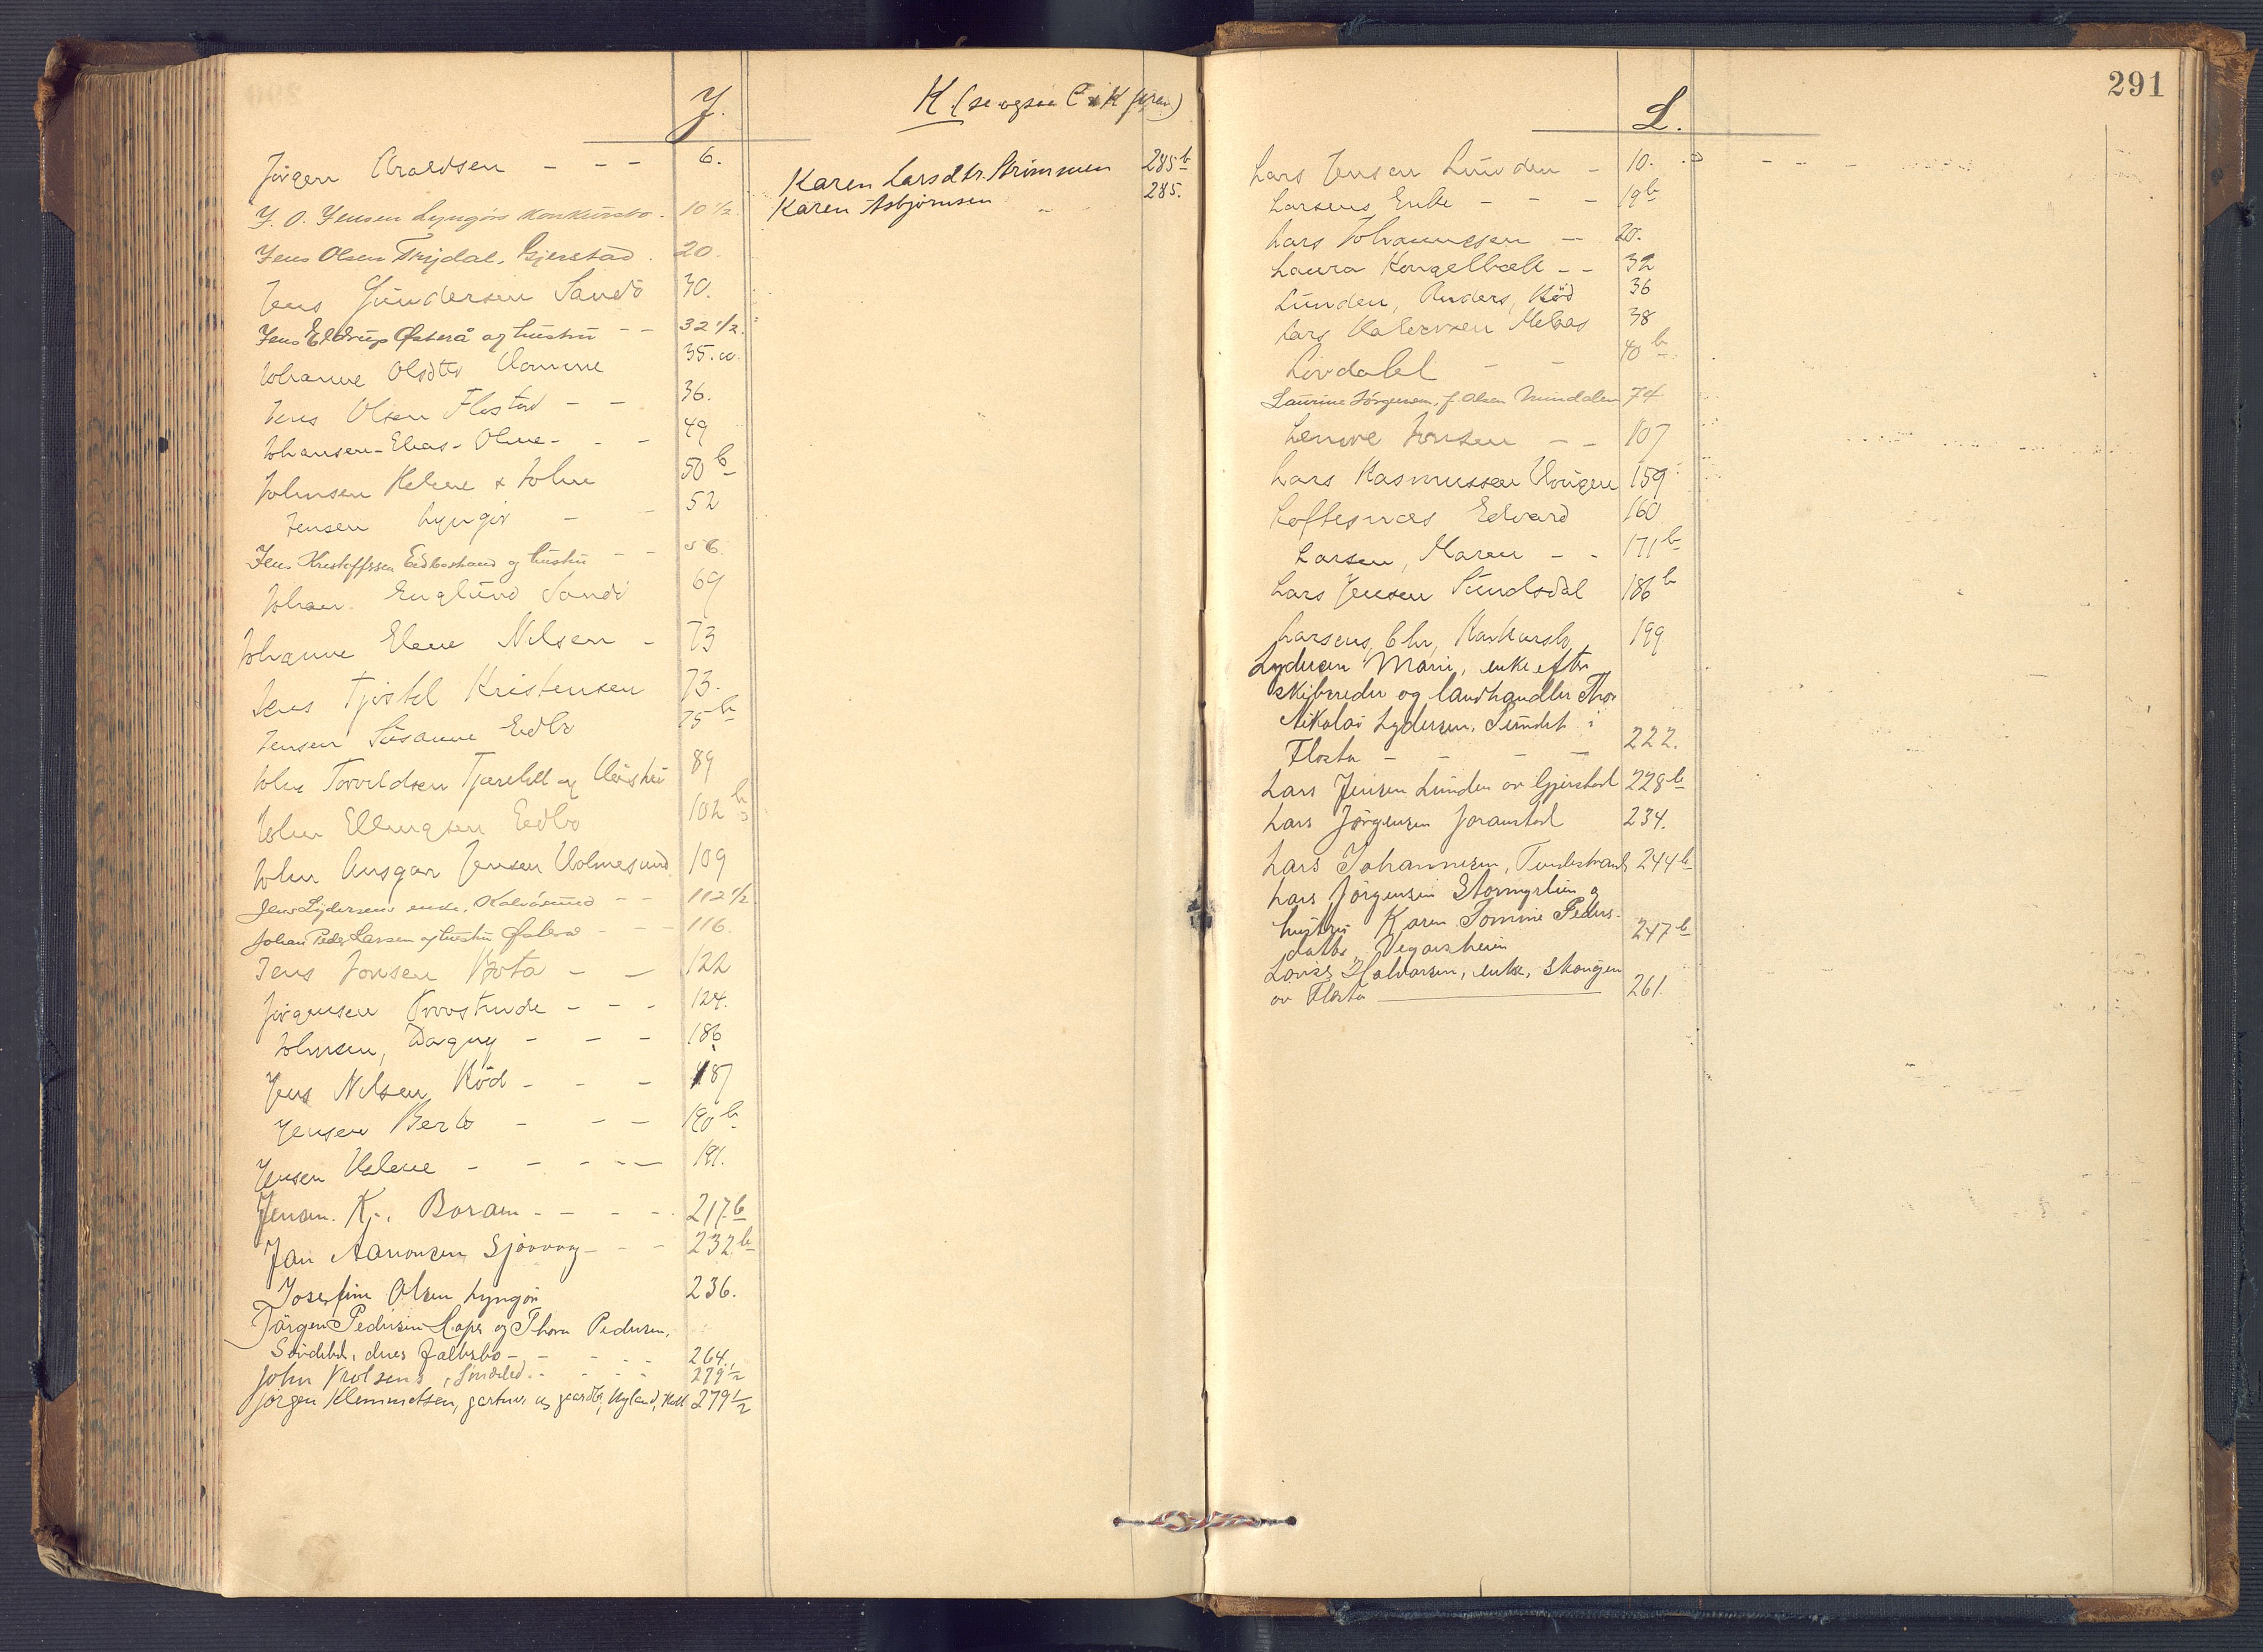 J.
Jörgen Araldsen - - - 6.
J. O. Jensen Lyngörs konkursbo. 10 1/2.
Jens Olsen Trydal, Gjerstad. 20.
Jens Gundersen Sandö 30.
Jens Eldrup Østerå og hustru - - 32 1/2.
Johanne Olsdtr 35.
Jens Olsen Flosta - - 36.
Johansen - Elias - Oline - - - 49
Johnsen Helene & John 50 b
Jensen Lyngör - - 52
Jens Kristoffersen og hustru - - 56
Johan Englund Sandö 69
Johanne Elene Nilsen - 73
Jens Tjöstel Kristensen 73.
Jensen Susanne Eidbo 75 b
John Torvildsen og 89
John Ellingsen Eidbo 102 b
John Ansgar Jensen Holmesund 109
Jens Lydersens enke, Kalvösund - - 112 1/2
Johan Peder Larsen og hustru Østerå - - - 116.
Jens Jonsen Bota - - 122
Jörgensen - - - 124.
Johnsen, Dagny - - - 186
Jens Nilsen Röd - - - 187
Jensen Berto - - - 190 b
Jensen Halene - - - - 191.
Jensen. K., Boram - - - - 217 b
Jan Aanonsen Sjövaag - - - 232 b
Josefine Olsen Lyngör 236.
Jörgen Pedersen Hope og Thora Pedersen,
Söndeled, deres fællesbo - - - - 264.
John Søndeled. - - - 279 1/2
Jörgen Klemmetsen, gartner og gaardbr, Nyland, Holt 279 1/2
K. (se ogsaa C & K foran)
Karen Larsdtr. Strömmen 285 b
Karen Asbjörnsen - - 285.
291
L.
Lars Jensen Lunden - 10.
Larsens Enke - - - 19 b
Lars Johannesen - 20.
Laura Kongelbæk - - 32
Lunden, Anders, Röd 36
Lars Halvorsen Melaas 38
Livdalel - - 40 b
Laurine Jörgensen, f. Olsen Mindalen 74
Lenvve Jonsen - - 107
Lars Rasmussen 159
Loftesnæs Edvard 160
Larsen, Maren - - 171 b
Lars Jensen Sundsdal 186 b
Larsens, Chr, Konkursbo, 199
Lydersen Marie, enke efter
skibsreder og landhandler Thor
Nikolai Lydersen, Sundet i
Flosta - - - 222.
Lars Jensen Lunden av Gjerstad 228 b
Lars Jörgensen Joranstad 234.
Lars Johannesen, Tvedestrand, 244 b
Lars Jörgensen Stormyrlien og
hustru Karen Tomine Peders-
datter, Vegarsheien 247 b
Lovise Halvorsen, enke, Skovgen
av Flosta 261.